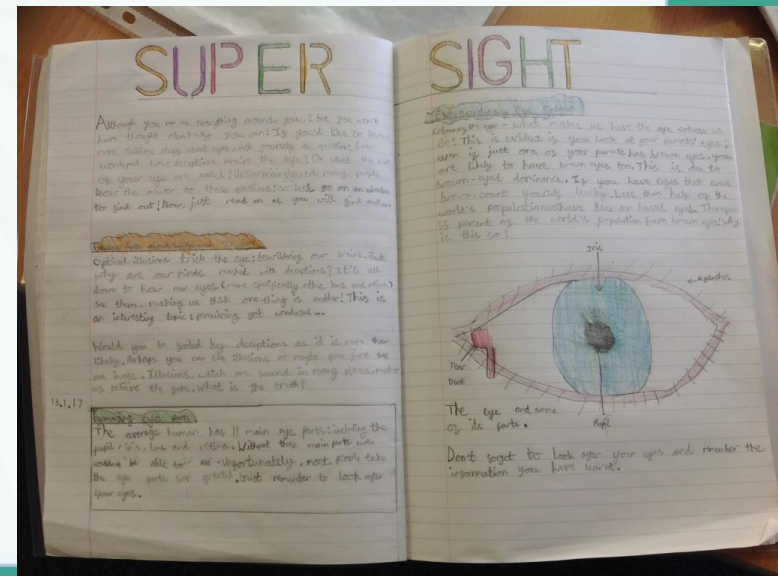 SUPER SIGHT
Although you can see everything around you, I bet you won't
have thought about why you can! If you'd like to know
more surreal things about eyes, ask yourself a question: Ever
wondered how deceptions enter the eye? Or what the parts
of your eye are called? Unsurprisingly, not many people
know the answer to these questions: so let's go on an adventure
to find out! Now, just read on as you will find out
Optical illusions trick the eye; bewildering our brains. But
why are our minds with deceptions? It's all
down to how our eyes (more specifically the lens and retina)
see them, making us think one thing is another! This is
an interesting topic: yet wonderful...
Would you be fooled by deceptions as it is more than
likely. Perhaps you can see illusions or maybe you just see
an image. Illusions, which are found in many places, make
us believe the fake. What is the truth?
13.1.17
Amazing eye parts
The average human has 11 main eye parts: including the
pupil, iris, lens and retina. Without these main parts we
wouldn't be able to see. Unfortunately, most people take
the eye parts for granted. Just remember to look after
your eyes.
Extraordinary Eye Colour
Colouring the eye - what makes us have the eye colour we
do? This is evident if you look at your parents' eyes;
even if just one of your parents has brown eyes, you
are likely to have brown eyes too. This is due to
brown-eyed dominance. If you have eyes that aren't
brown, count yourself lucky. Less than half of the
world's population have blue or hazel eyes.
55 percent of the world's population have brown eyes: why
is this so?
Iris
Tear
Duct
Pupil
The eye and some
of its parts.
Don't forget to look after your eyes and remember the
information you have learnt.